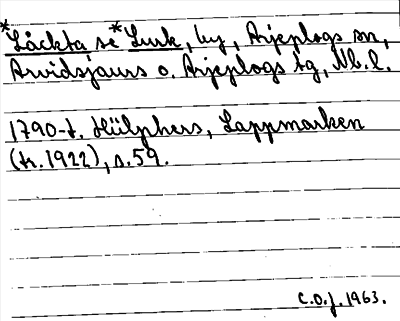 *Låckta se *Lurk, by, Arjeplogs sn,
Arvidsjaurs o. Arjeplogs tg, Nb. l.
1790-t. Hülphers, Lappmarken
(tr. 1922), s. 59.
C.O.J. 1963.